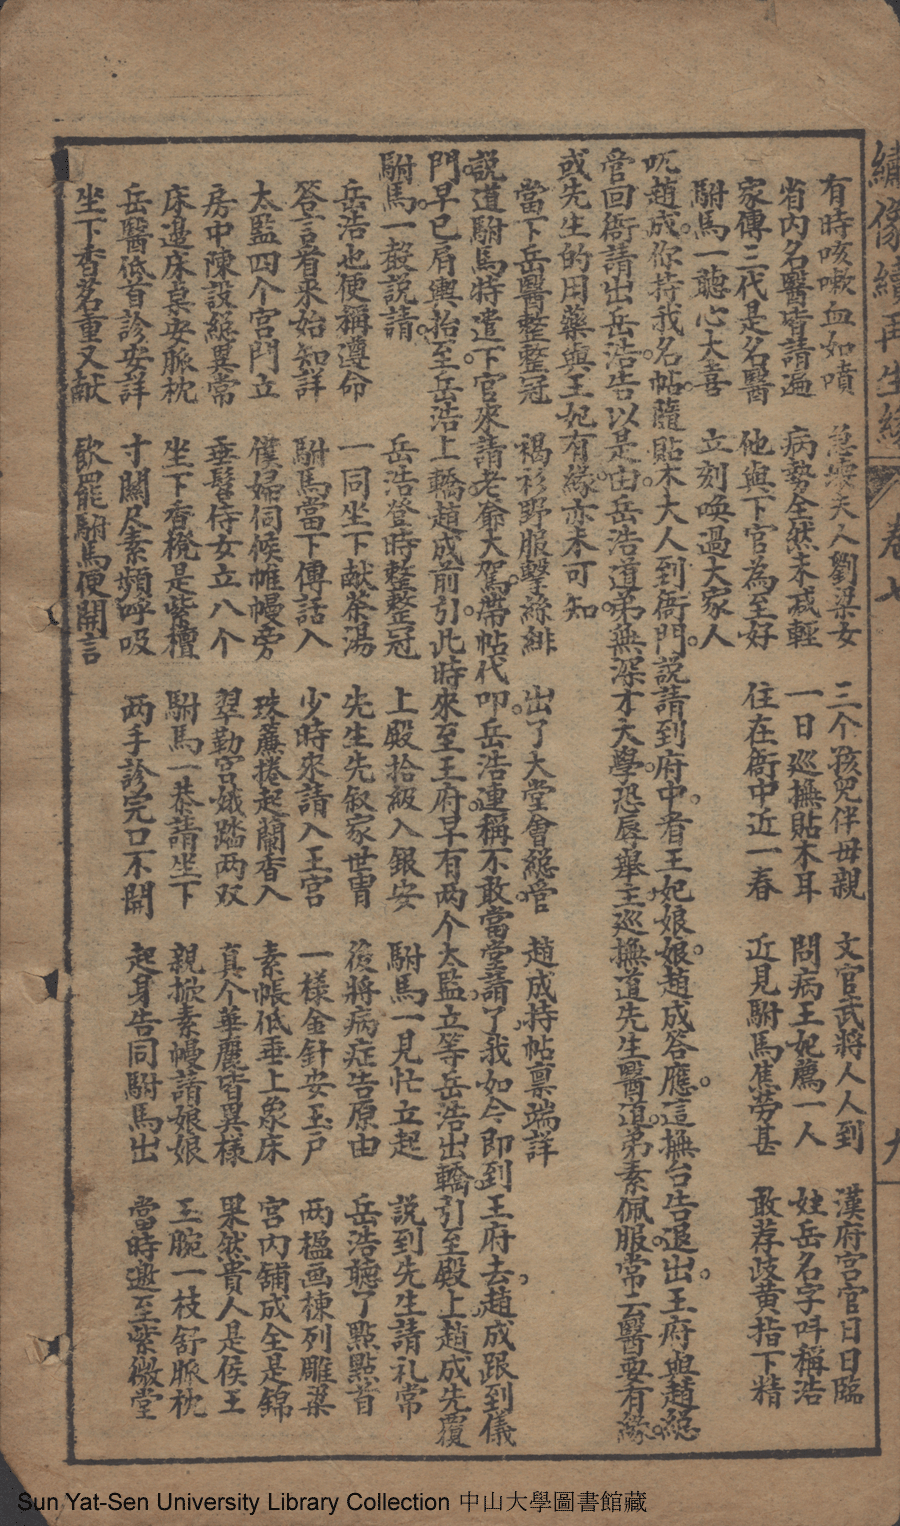 繡像續再生緣 卷七 九
有時咳嗽血如噴 急壞夫人劉梁女 三个孩兒伴母親 文官武將人人到 漢府宫官日日臨
省內名醫皆請遍 病勢全然未減輕 一日巡撫貼木耳 問病王妃薦一人 姓岳名字呌稱浩
家傳三代是名醫 他與下官為至好 住在衙中近一春 近見駙馬焦勞甚 敢荐歧黄指下精
駙馬一聽心大喜 立刻喚過大家人
呃趙成。你持我名帖隨貼木大人到衙門。説請到府中。看王妃娘娘。趙成答應。這撫台告退出。王府與趙縂
管回衙請出岳浩。告以是由。岳浩道。弟無深才大學。恐辱舉主巡撫道先生醫道弟素佩服。常云醫要有緣。
或先生的用藥與王妃有緣。亦未可知
當下岳醫整整冠 褐衫野服擊絲緋 出了大堂會縂管 趙成持帖禀端詳
説道駙馬特遣下官來請老爺大駕。帶帖代叩。岳浩連稱不敢當。堂請了。我如今即到王府去。趙成跟到儀
門。早已肩輿抬至。岳浩上轎。趙成前引。此時來至王府。早有两个太監。立等岳浩出轎。引至殿上。趙成先覆
駙馬。一殸説請。 岳浩登時整整冠 上殿拾級入銀安 駙馬一見忙立起 説到先生請礼常
岳浩也便稱遵命 一同坐下献茶湯 先生先叙家世胄 後將病症告原由 岳浩聽了點點首
答言看來始知詳 駙馬當下傳話入 少時來請入王宫 一樣金針安玉戸 两楹画棟列雕梁
太監四个宫門立 僕婦伺候帷幔旁 珠簾捲起蘭香入 素帳低垂上象床 宫内鋪成全是錦
房中陳設縂異常 垂髫侍女立八个 翠勒宫娥踏两双 真个華麗皆異樣 果然貴人是侯王
床邉床桌安脈枕 坐下香櫈是紫檀 駙馬一恭請坐下 親掀素幔請娘娘 玉腕一枝舒脈枕
岳醫低首診安詳 寸關尺素頻呼吸 两手診完口不開 起身告同駙馬出 當時邀至紫微堂
坐下香茗重又献 飲罷駙馬便開言
Sun Yat-Sen University Library Collection 中山大學圖書館藏